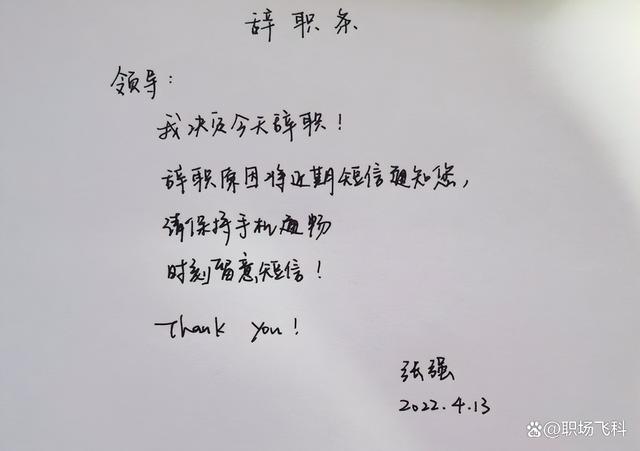 辞职条
领导：
我决定今天辞职！
辞职原因将近期短信通知您，
请保持手机通畅
时刻留意短信！
Thank you!
张强
2022.4.13
@职场飞科